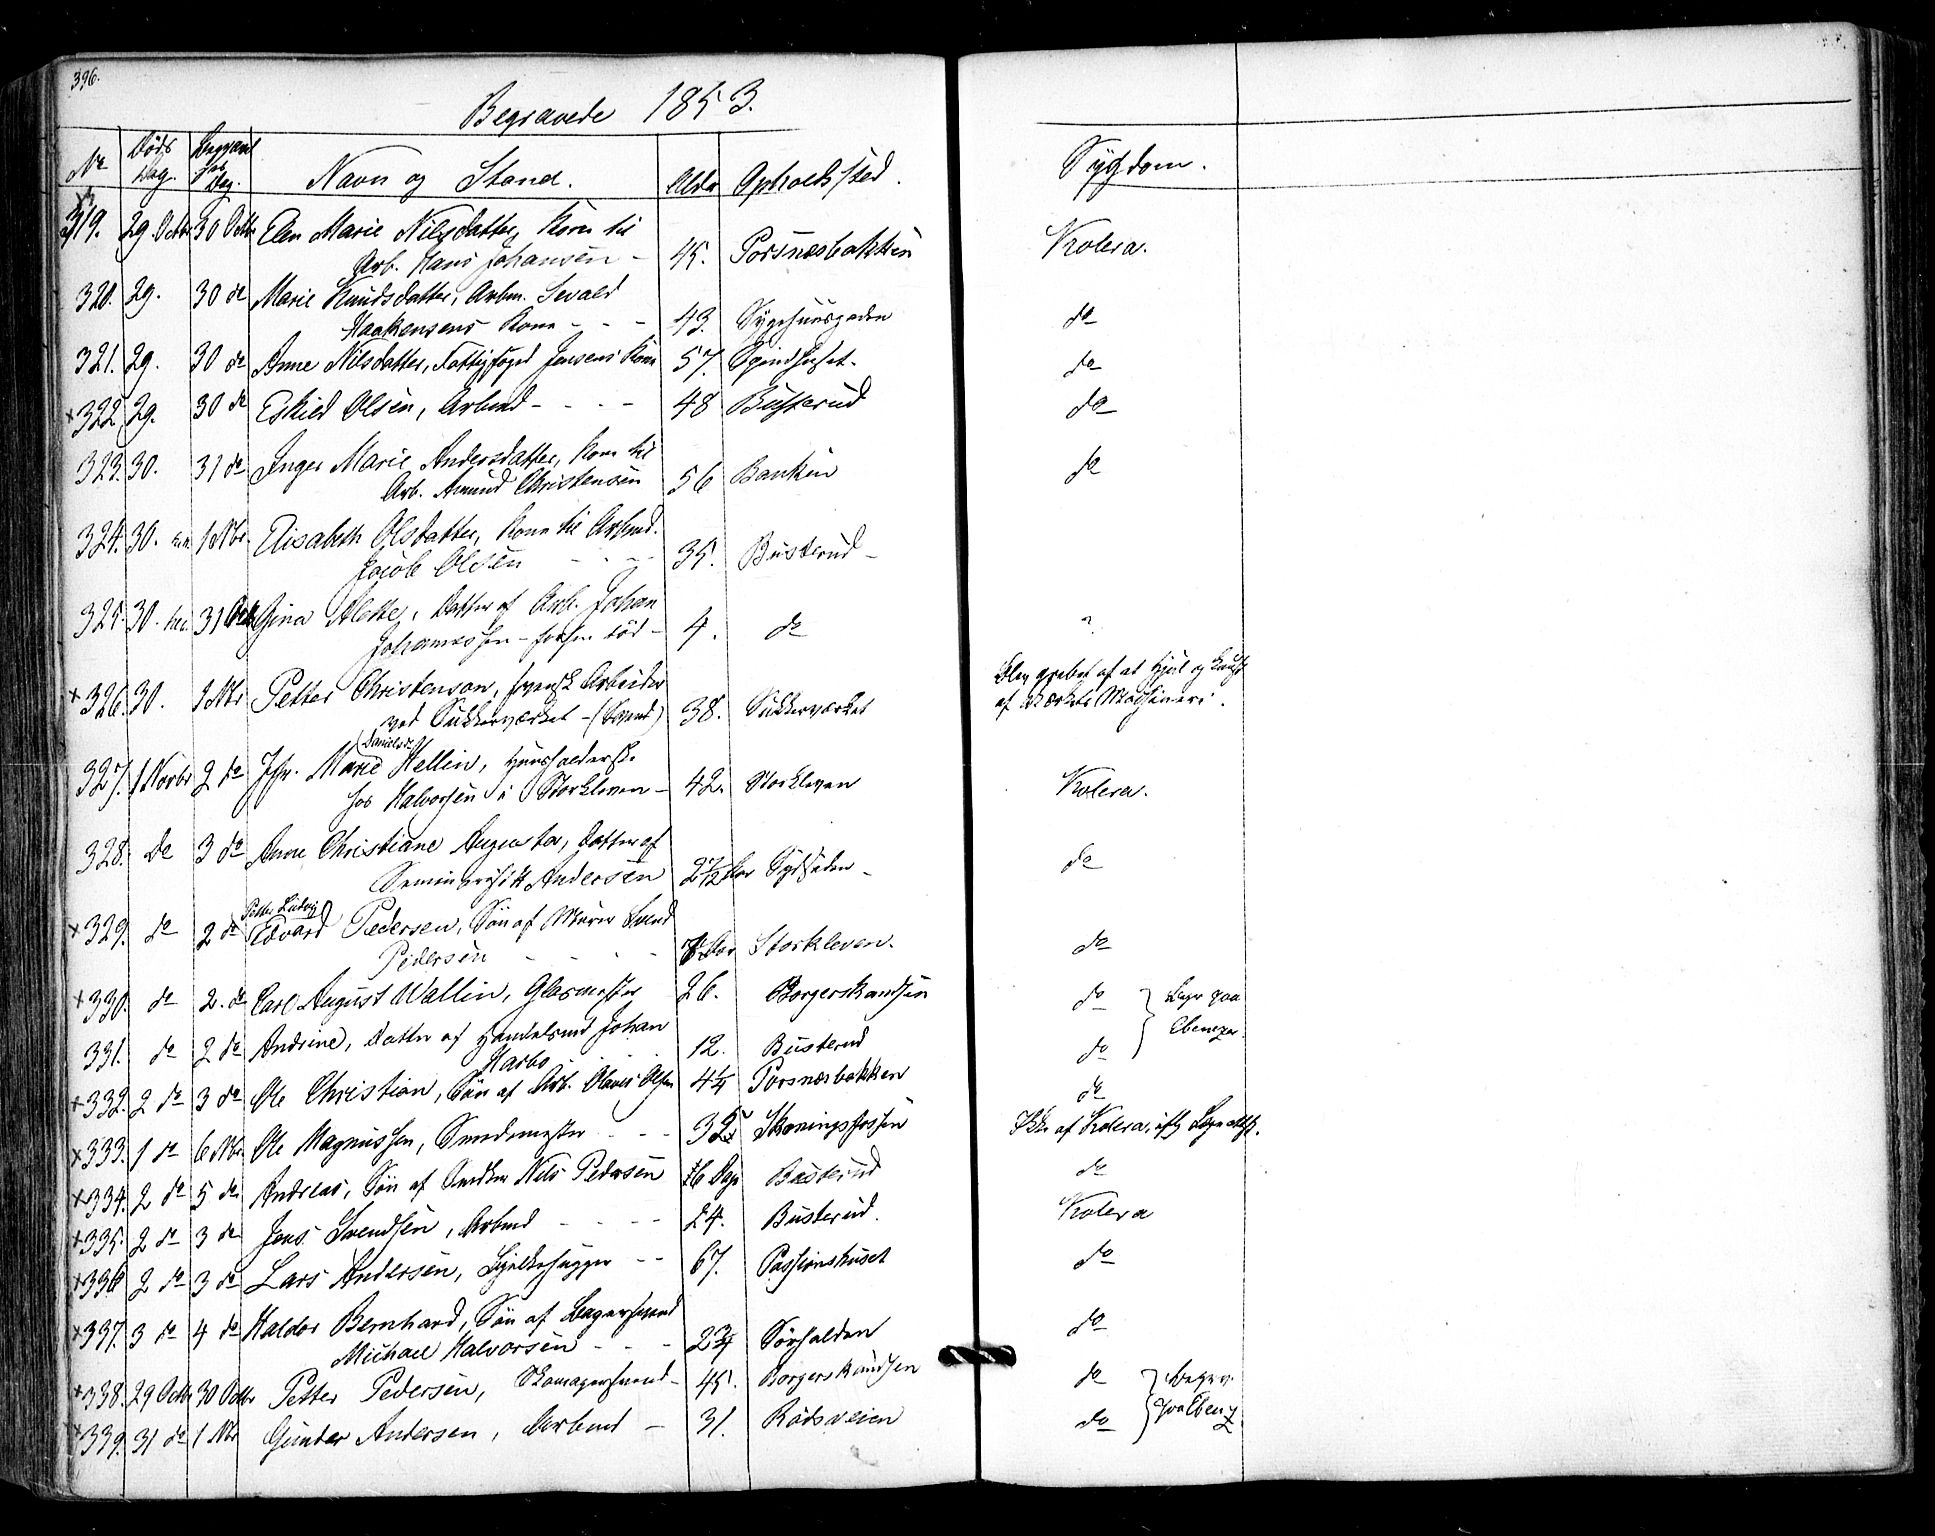 396.
Begravede 1853.
No Døds Dag. Begravelses Dag. Navn og Stand. Alder Opholdssted. Sygdom.
319. 29. Octbr 30 Octbr Elen Marie Nilsdatter, Kone til
Arb. Hans Johansen - 45. Porsnæsbakken Kolera.
320. 29. 30 do Marie Knudsdatter, Arbm. Sevald
Haakensens Kone - - - 43. Sygehuusgaden do
321. 29. 30 do Anne Nilsdatter, Fattigfoged Jensens Kone 57. Spindhuset. do
x 322 29. 30 do Eskild Olsen, Arbmd - - - - 48 Busterud do
323. 30. 31 do Inger Marie Andersdatter, Kone til
Arb. Amund Christensen 56 Banken do
324. 30. 1 Nbr. Elisabeth Olsdatter, Kone til Arbmd.
Jacob Olsen - - - 35. Busterud -
325. 30. 31 Oct Gina Mette, Datter af Arb. Johan
Johannessen - forhen død - 4. do
x 326. 30. 1 Nbr Petter Christenson, svensk Arbeider
ved Sukkerværket - (Svend) 38. Sukkerværket
Blev grebet af et Hjul og knust
af Værkets Maskineri.
327. 1 Novbr 2 do Jfr. Marie (Danielsdr) Hellin, Huusholderske
hos Halvorsen i Storkleven - 42. Storkleven Kolera.
328. do 3 do Anne Christiane Augusta, Datter af
Seminarist Andersen 2 1/2 Aar Sydsiden - do
x 329. do 2 do Petter Ludvig
Edvard Pedersen, Søn af Murer Svend
Pedersen - - - - - Aar Storkleven. do
x 330. do 2. do Carl August Wallin, Glasmester 26. Borgerskandsen do } Begr. paa
331. do 2 do Andrine, Datter af Handelsmd Johan
Harbo - - - 12. Busterud do } Ebenezer.
x 332. 2 do 3 do Ole Christian, Søn af Arb. Olaves Olsen 4 1/4 Porsnæsbakken do
x 333. 1 do 6 Nbr Ole Magnussen, Smedemester - - - 35 Skoningsfossen Ikke af Kolera, ifg. Lægeattst.
x 334. 2 do 5 do Andreas, Søn af Snedker Nils Pedersen 16 Dage Busterud do
x 335. 2 do 3 do Jens Svendsen, Arbmd - - - - 24. Busterud. Kolera
x 336 2 do 3 do Lars Andersen, Bjelkehugger - - 67. Passionshuset do
x 337. 3 do 4 do Haldor Bernhard, Søn af Bagersvend
Michael Halvorsen - - - 2 3/4 Sørhalden do
x 338. 29 Octbr 30 Octbr Petter Pedersen, Skomagersvend - 45. Borgerskandsen do } Begr.
x 339. 31 do 1 Nbr Gunder Andersen, Arbmd - 31. Rødsveien do } paa Ebenez